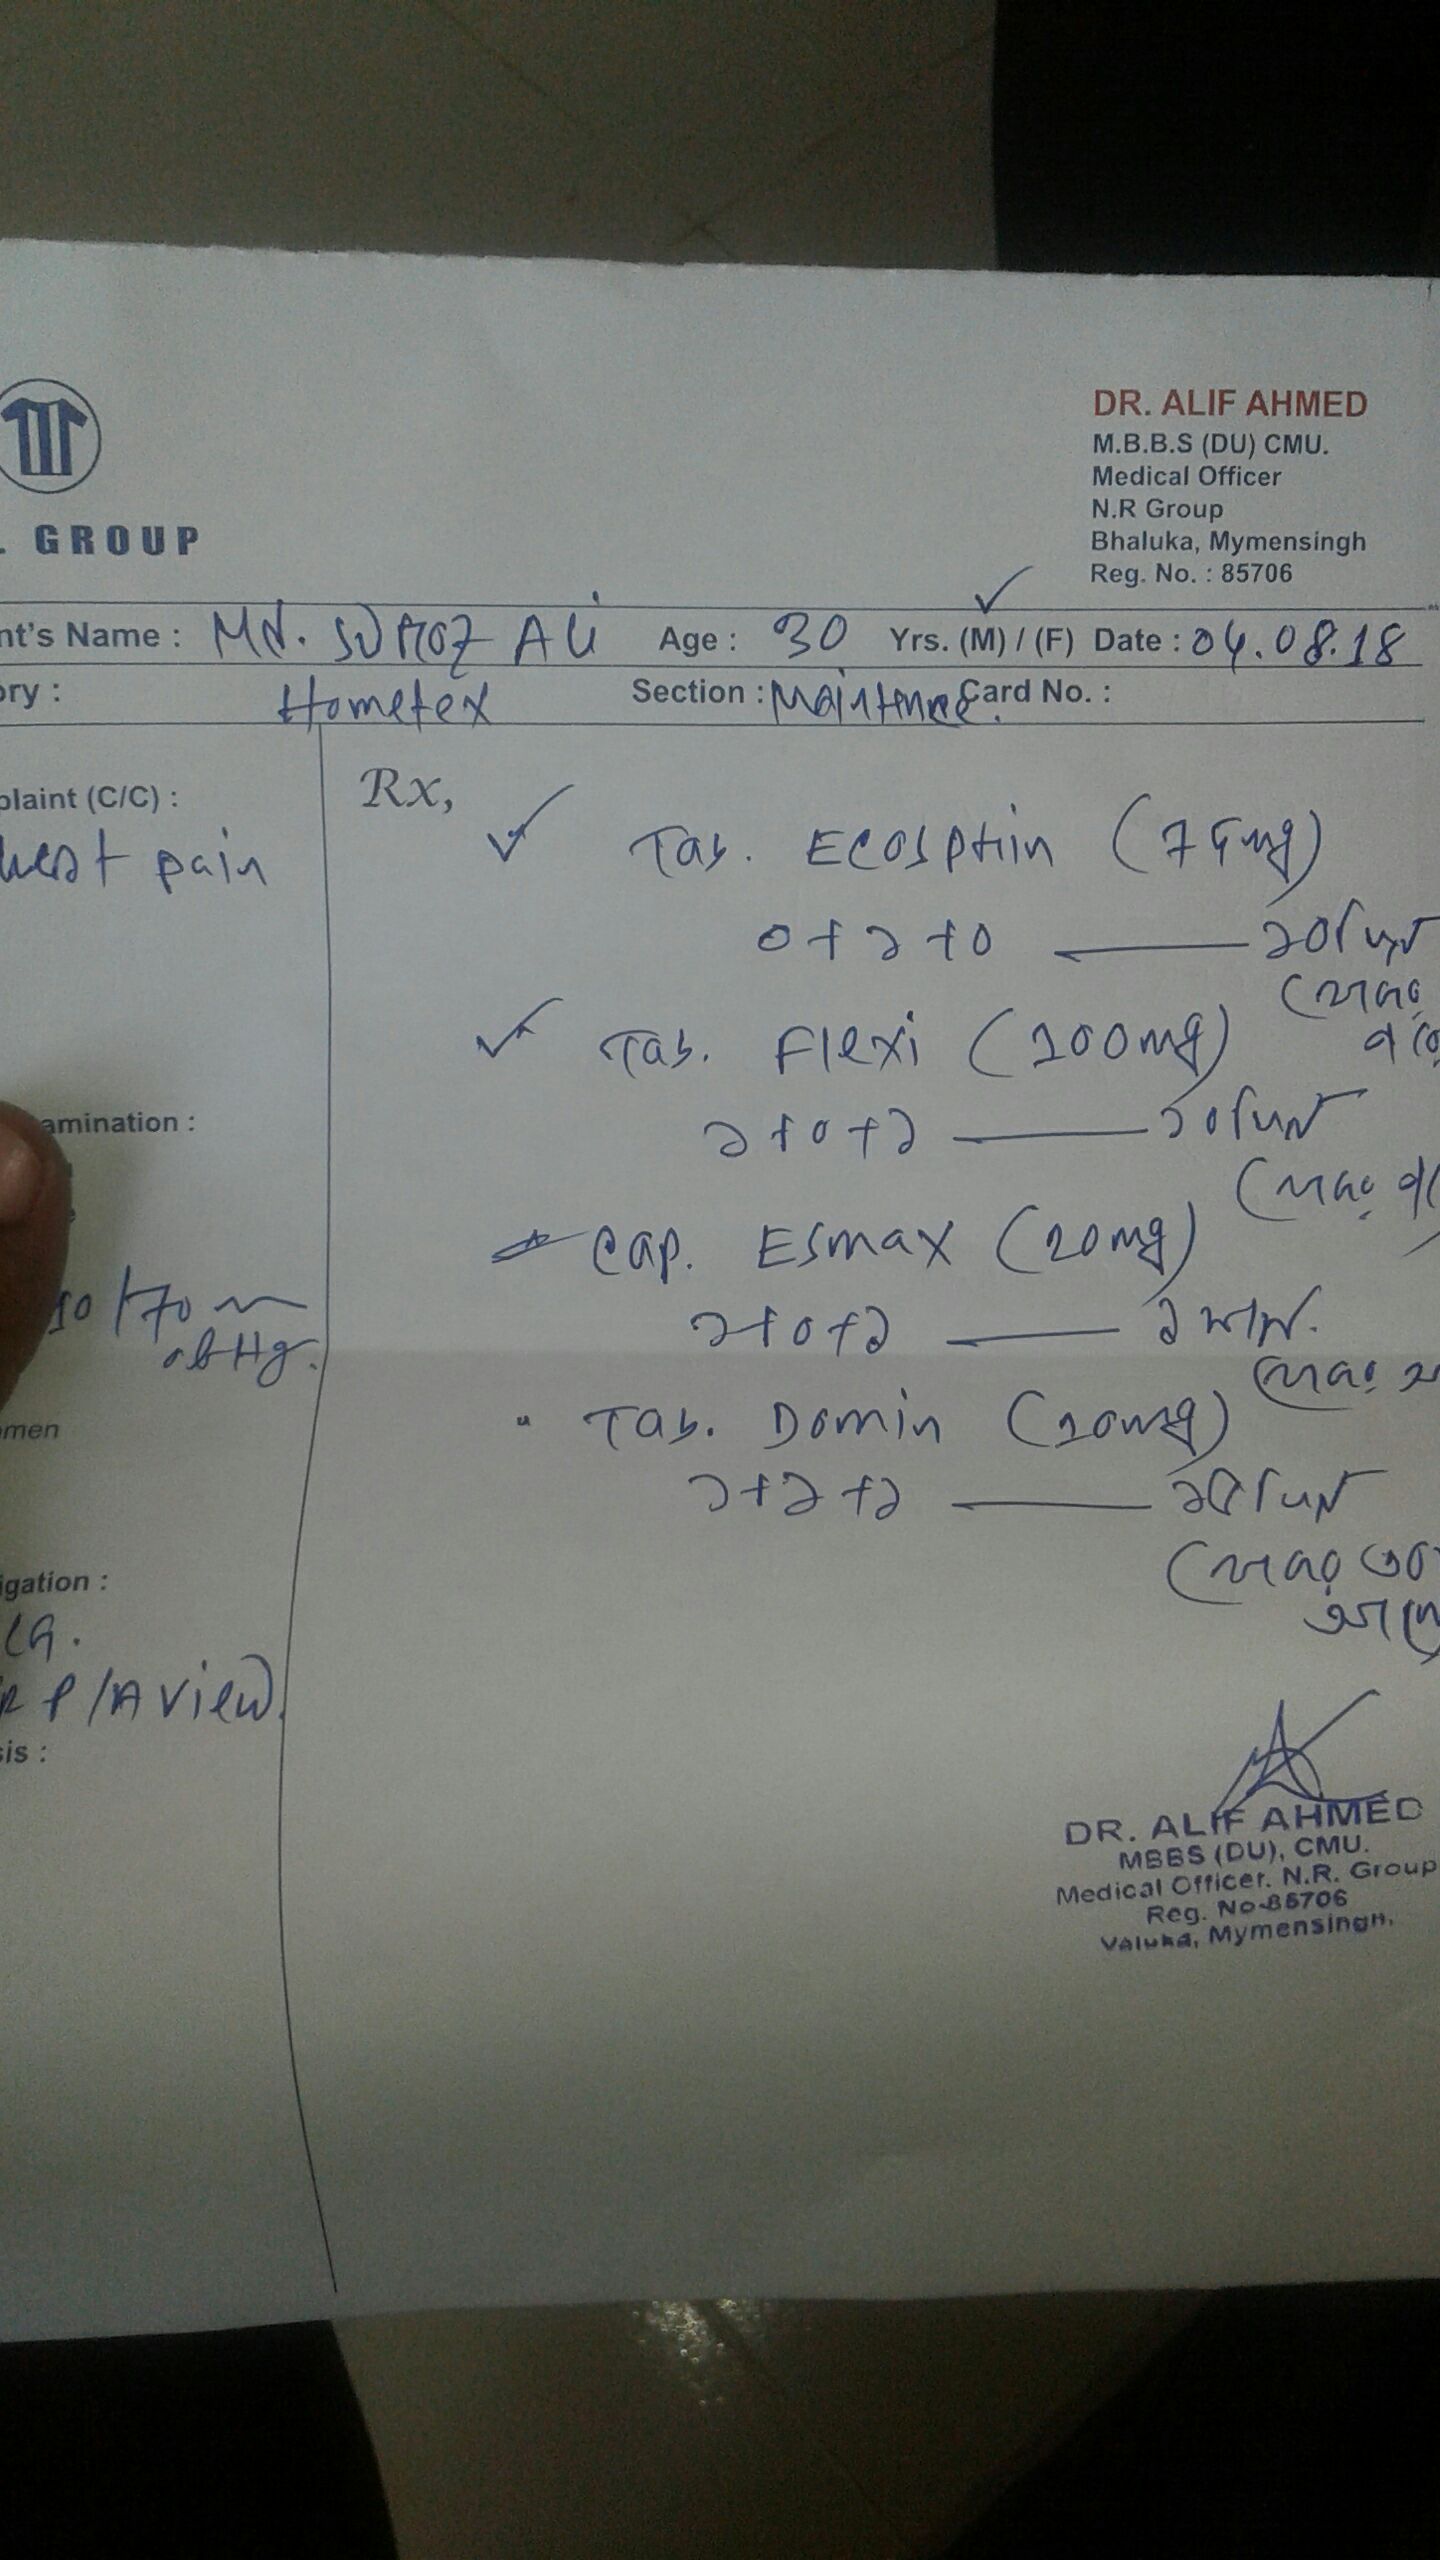 . GROUP
DR. ALIF AHMED
M.B.B.S (DU) CMU.
Medical Officer
N.R Group
Bhaluka, Mymensingh
Reg. No. : 85706
nt's Name : Md. Suroz Ali Age : 30 Yrs. (M) / (F) Date : 04.08.18
ory : Hometex Section : Card No. :
plaint (C/C) :
hest pain
amination :
/70
omen
igation :
P/A view
sis :
Rx,
Tab. Ecosprin (75mg)
০+১+০ — ১০দিন
Tab. Flexi (100mg)
১+০+১ — ১০দিন
Cap. Esmax (20mg)
১+০+১ — ১ মাস.
Tab. Domin (10mg)
১+১+১ — ১৫দিন
DR. ALIF AHMED
MBBS (DU), CMU.
Medical Officer. N.R. Group
Reg. No-85706
Valuka, Mymensingh.